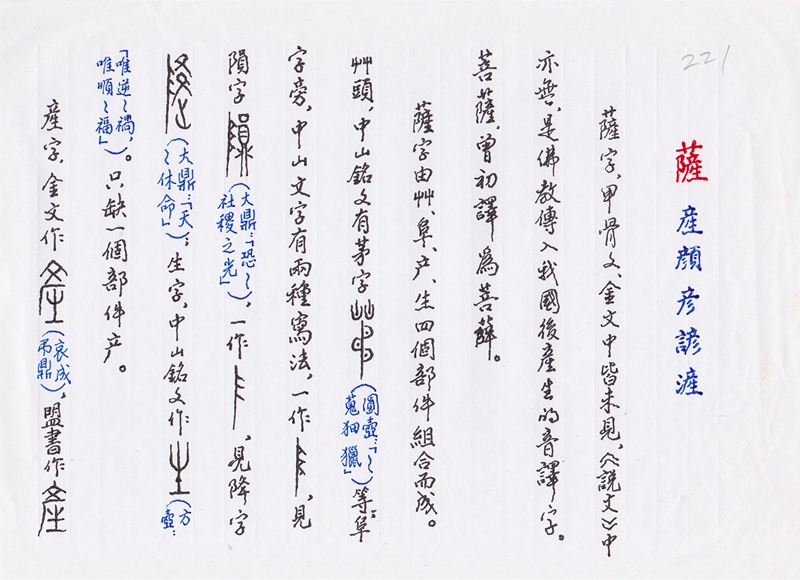 221
薩 産 顔 彦 諺 滻
薩字，甲骨文、金文中皆未見，《說文》中
亦無，是佛教傳入我國後產生的音譯字。
菩薩，曾初譯為菩薛。
薩字由艸、阜、产、生四個部件組合而成。
艸頭，中山銘文有茅字（圓壺：「〻蒐狃獵」）等；阜
字旁，中山文字有兩種寫法，一作，見
隕字（大鼎：「恐〻社稷之光」），一作，見降字
（大鼎：「天〻休命」）；生字，中山銘文作（方壺：
「唯逆〻禍，唯順〻福」）。只缺一個部件产。
産字，金文作（哀成弔鼎），盟書作